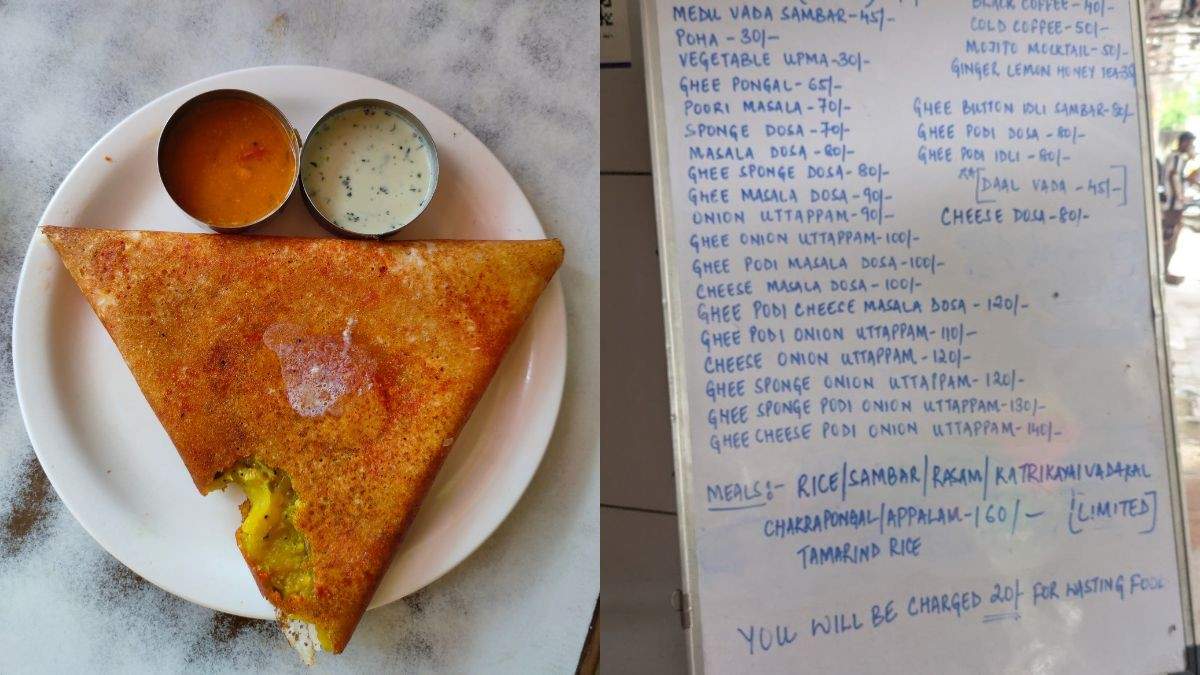 BLACK COFFEE-40/-
MEDU VADA SAMBAR-45/-
COLD COFFEE-50/-
POHA - 30/-
MOJITO MOCKTAIL-50/-
VEGETABLE UPMA-30/-
GINGER LEMON HONEY TEA-
GHEE PONGAL- 65/-
POORI MASALA-70/-
GHEE BUTTON IDLI SAMBAR-
SPONGE DOSA -70/-
GHEE PODI DOSA-80/-
MASALA DOSA -80/-
GHEE PODI IDLI -80/-
GHEE SPONGE DOSA-80/-
[DAAL VADA -45/-]
GHEE MASALA DOSA-90/-
CHEESE DOSA-80/-
ONION UTTAPPAM-90/-
GHEE ONION UTTAPPAM-100/-
GHEE PODI MASALA DOSA-100/-
CHEESE MASALA DOSA-100/-
GHEE PODI CHEESE MASALA DOSA - 120/-
GHEE PODI ONION UTTAPPAM-110/-
CHEESE ONION UTTAPPAM-120/-
GHEE SPONGE ONION UTTAPPAM-120/-
GHEE SPONGE PODI ONION UTTAPPAM-130/-
GHEE CHEESE PODI ONION UTTAPPAM-140/-
MEALS:- RICE/SAMBAR/RASAM/KATRIKAYAIVADAKAL
CHAKRAPONGAL/APPALAM-160/- [LIMITED]
TAMARIND RICE
YOU WILL BE CHARGED 20/- FOR WASTING FOOD